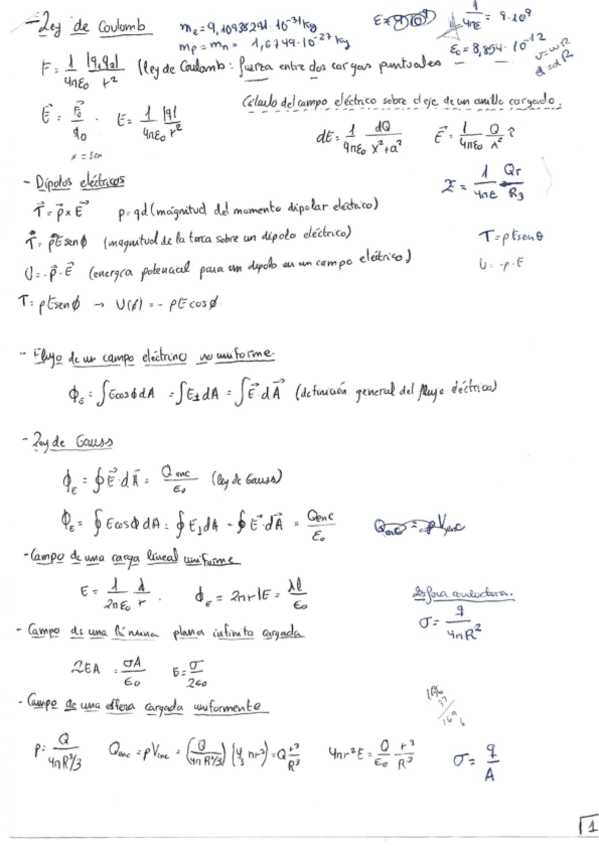 - Ley de Coulomb
me = 9,10938291 · 10^-31 kg
mp = mn = 1,6749 · 10^-27 kg
1/4πε = 9 · 10^9
ε0 = 8,854 · 10^-12
v = ωR
d = αR
F = 1/4πε0 |q1q2|/r² (ley de Coulomb: fuerza entre dos cargas puntuales
E⃗ = F⃗0/q0 . E = 1/4πε0 |q|/r²
Cálculo del campo eléctrico sobre el eje de un anillo cargado.
dE = 1/4πε0 dQ/x²+a² E⃗ = 1/4πε0 Q/r² î
- Dipolos eléctricos
Σ = 1/4πε Qr/R3
τ⃗ = p⃗ × E⃗ p = qd (magnitud del momento dipolar eléctrico)
τ = pE sen ϕ (magnitud de la torca sobre un dipolo eléctrico)
τ = pE sen θ
U = -p⃗ · E⃗ (energía potencial para un dipolo en un campo eléctrico)
U = -p · E
τ = pE sen ϕ → U(ϕ) = - pE cos ϕ
- Flujo de un campo eléctrico no uniforme.
ΦE = ∫E cos ϕ dA = ∫E⊥ dA = ∫E⃗ · dA⃗ (definición general del flujo eléctrico)
- Ley de Gauss
ΦE = ∮E⃗ · dA⃗ = Qenc/ε0 (ley de Gauss)
ΦE = ∮E cos ϕ dA = ∮E⊥ dA = ∮E⃗ · dA⃗ = Qenc/ε0
Qenc = ρVenc
- Campo de una carga lineal uniforme
E = 1/2πε0 λ/r . ΦE = 2πrlE = λl/ε0
Esfera conductora.
σ = q/4πR²
- Campo de una lámina plana infinita cargada
2EA = σA/ε0 E = σ/2ε0
- Campo de una esfera cargada uniformemente
ρ = Q/4πR³/3 Qenc = ρVenc = (Q/4πR³/3) (4/3 πr³) = Q r³/R³ 4πr²E = Q/ε0 r³/R³ σ = q/A
1